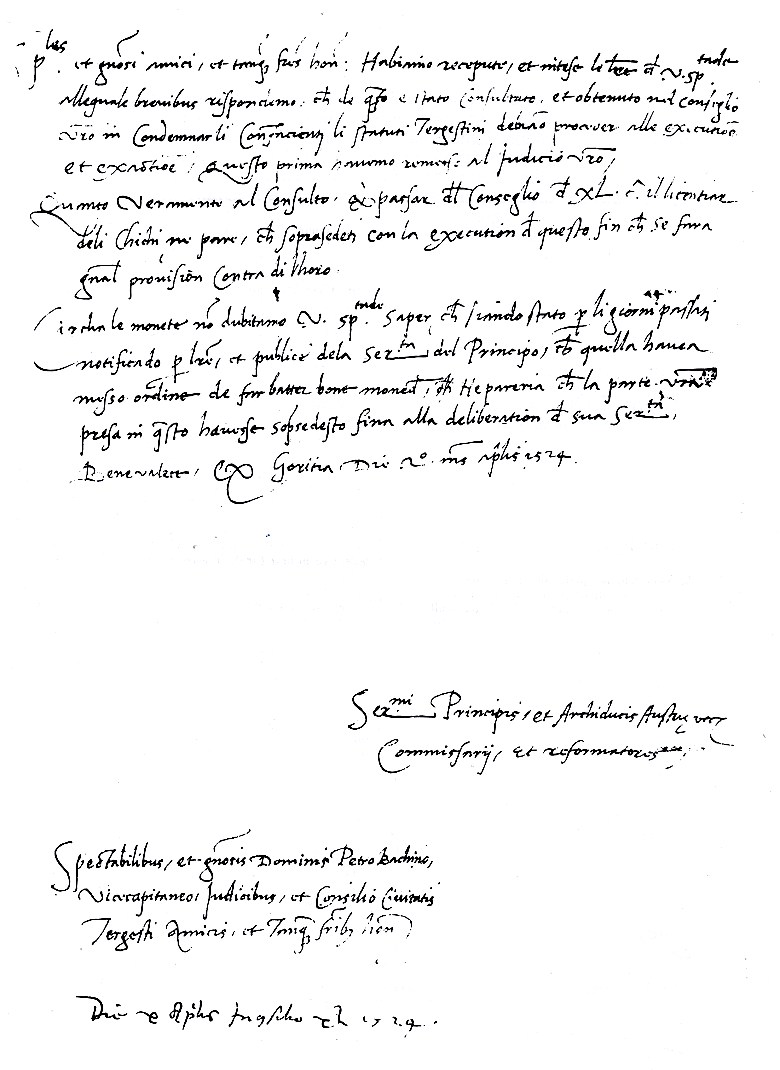 et gnosi amici, et tanq; fres hon: Habiamo recepute, et intese le lre d V. sp.tade
Allequale brevibus respondemo: ch de qsto e stato Consultato, et obtenuto nel Consiglio
vro in Condemnarli li statuti Tergestini debiano proceder alle executione
et exactione, Questo prima havemo remesso al Judicio vro,
Quanto Veramente al Consulto, & passar dl Conseglio d XL. il licentiar
deli Chichi ne pare, ch soprasedeti con la execution d questo fin ch se fara
gnal provision Contra di lhoro.
Circha le monete no dubitamo V. sp.tade saper, ch siando stato p li giorni passati
notificado p lre, et publice dela Ser.ta del Principo, ch quella havea
messo ordine de far batter bone moned, ch la parte
presa in qsto havesse sopsedesto fina alla deliberation d sua Ser.ta,
Benevalete, Ex Goritia Die 2º. mis Aplis 1524.
Ser.mi Principis, et Archiducis Austrie
Commissarij, et reformatores
Spectabilibus, et gnosis Dominis Petro Bachino,
Vicecapitaneo, Judicibus, et Consilio Civitatis
Tergesti Amicis, et Tanq; frib; hon
Die x Aplis In 9silio xl 1524.